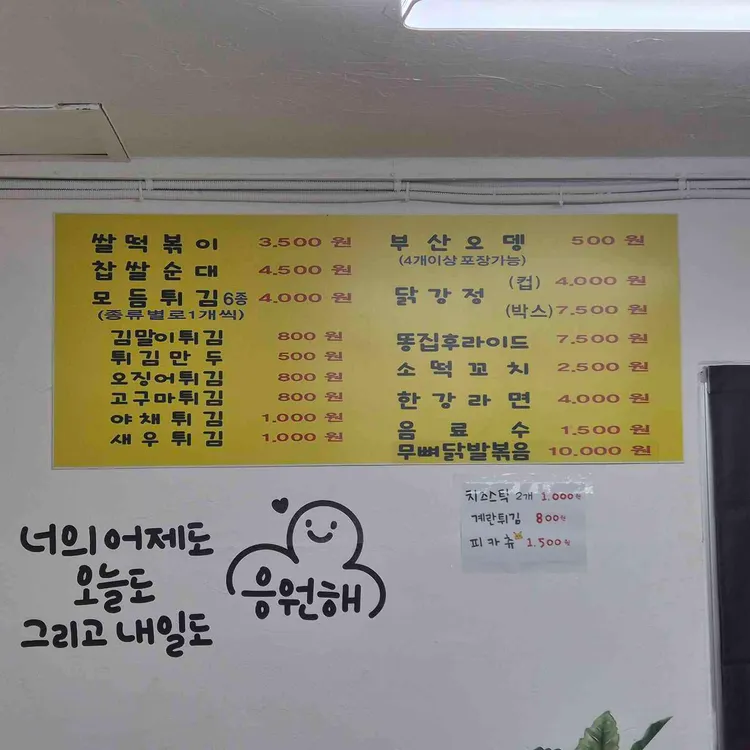 쌀떡볶이 3.500 원
찹쌀순대 4.500 원
모듬튀김 6종 4.000 원
(종류별로1개씩)
김말이튀김 800 원
튀김만두 500 원
오징어튀김 800 원
고구마튀김 800 원
야채튀김 1.000 원
새우튀김 1.000 원
부산오뎅 500 원
(4개이상 포장가능)
닭강정 (컵) 4.000 원
(박스) 7.500 원
똥집후라이드 7.500 원
소떡꼬치 2.500 원
한강라면 4.000 원
음료수 1.500 원
무뼈닭발볶음 10.000 원
치즈스틱 2개 1.000원
계란튀김 800원
피카츄 1.500원
너의 어제도
오늘도
그리고 내일도
응원해